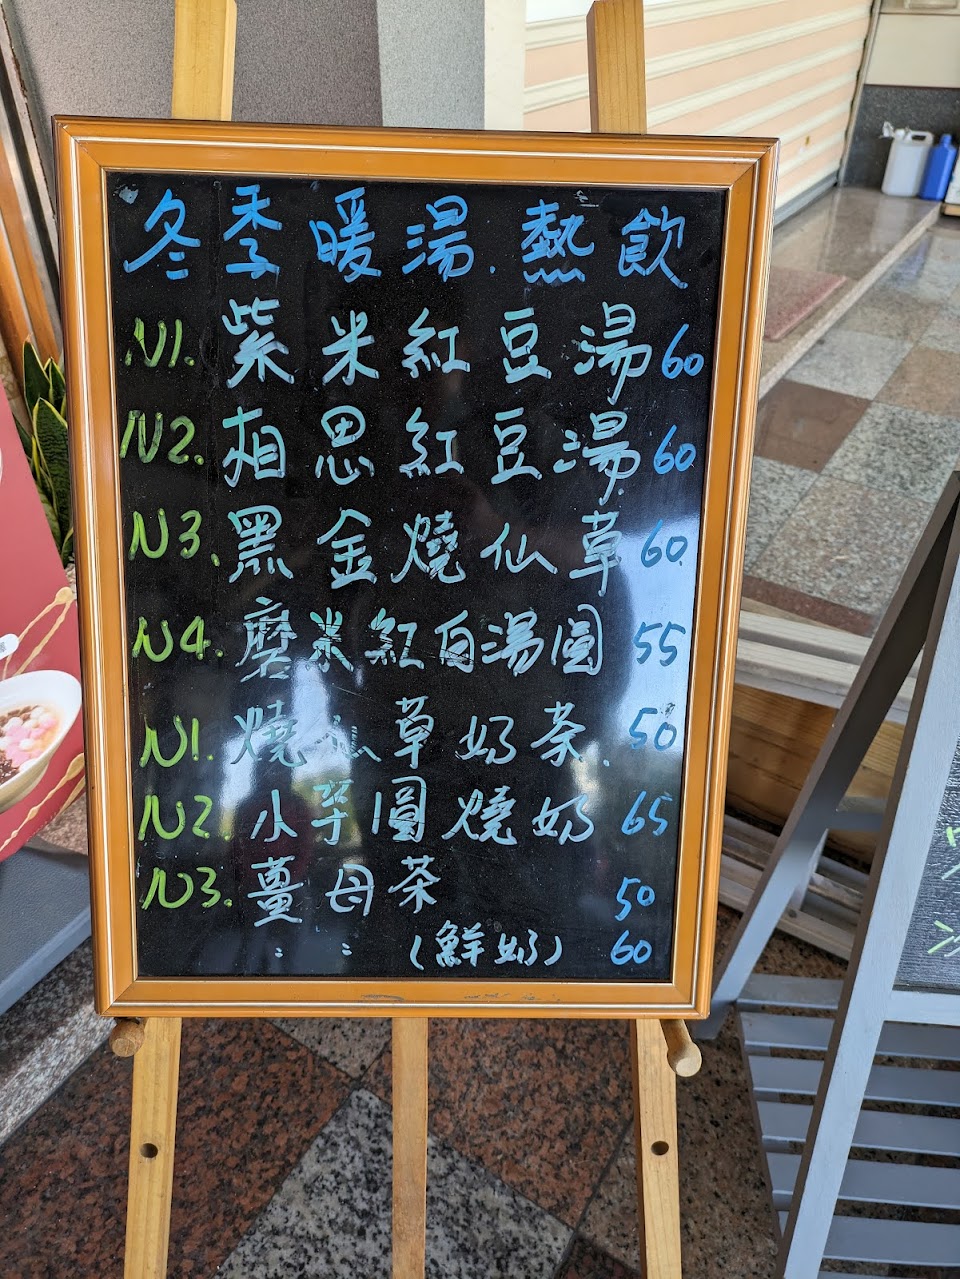 冬季暖湯.熱飲
N1.紫米紅豆湯60
N2.相思紅豆湯60
N3.黑金燒仙草60
N4.磨米紅白湯圓55
N1.燒仙草奶茶.50
N2.小芋圓燒奶65
N3.薑母茶50
: : (鮮奶)60